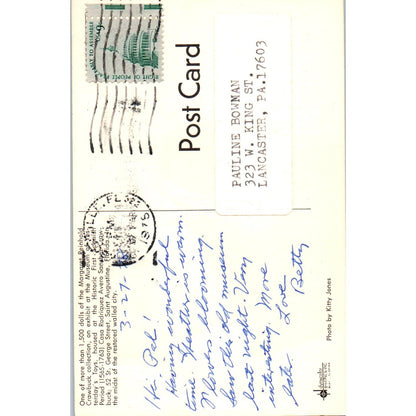 One of more than 1,500 dolls of the Margaret
Crawbuck collection, an exhibit at the Museum of Yes-
terday's Toys, housed at the Historic First Spanish
Period (1565-1763) Casa Rodriguez Avero Sanchez
52 St. George Street, Saint Augustine, Florida in
the midst of the restored walled city.
3-27-
Hi Pal!
Having wonderful
time. Weather is warm.
Flowers blooming.
Saw this old museum
last night. Very
interesting. More
later. Love
Betty
Photo by Kitty Jones
Post Card
PAULINE BOWMAN
323 W. KING ST.
LANCASTER, PA.17603
RIGHT OF PEOPLE
TO ASSEMBLE
9c
1978